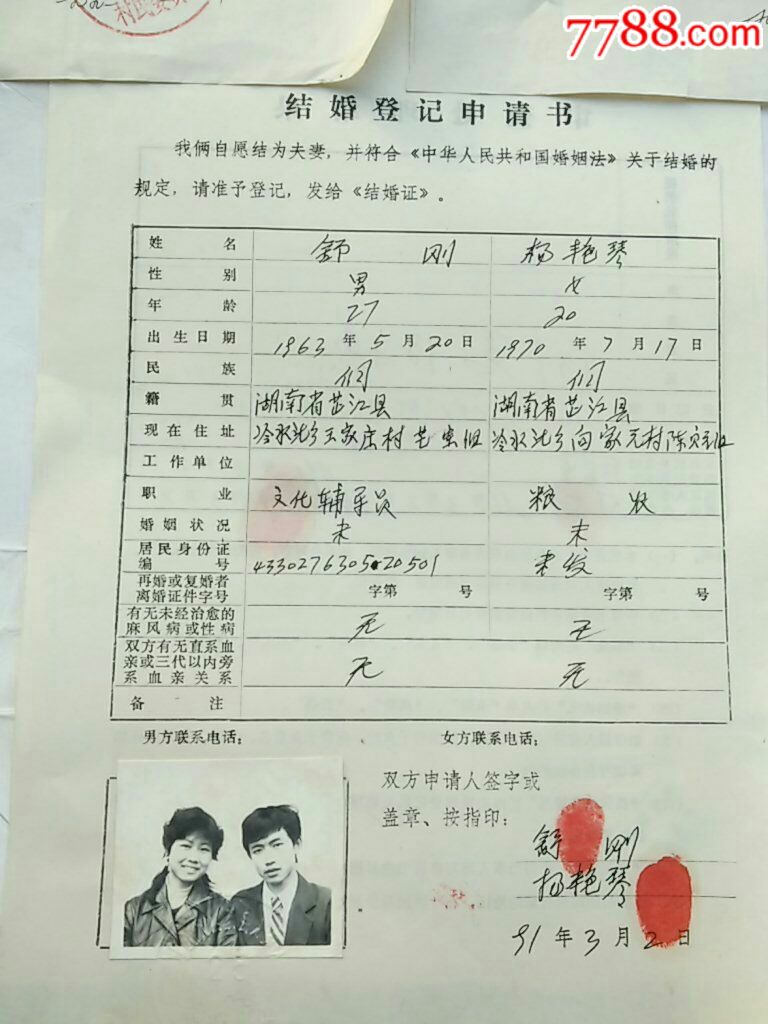 7788.com
结婚登记申请书
我俩自愿结为夫妻，并符合《中华人民共和国婚姻法》关于结婚的
规定，请准予登记，发给《结婚证》。
姓名 舒刚 杨艳琴
性别 男 女
年龄 27 20
出生日期 1963年5月20日 1970年7月17日
民族
籍贯 湖南省芷江县 湖南省芷江县
现在住址 冷水沘乡王家庄村 冷水沘乡向家元村
工作单位
职业 文化辅导员 粮农
婚姻状况 未 未
居民身份证
编号 433027630520501 未发
再婚或复婚者
离婚证件字号 字第 号 字第 号
有无未经治愈的
麻风病或性病 无 无
双方有无直系血
亲或三代以内旁
系血亲关系 无 无
备注
男方联系电话： 女方联系电话：
双方申请人签字或
盖章、按指印：
舒刚
杨艳琴
91年3月2日